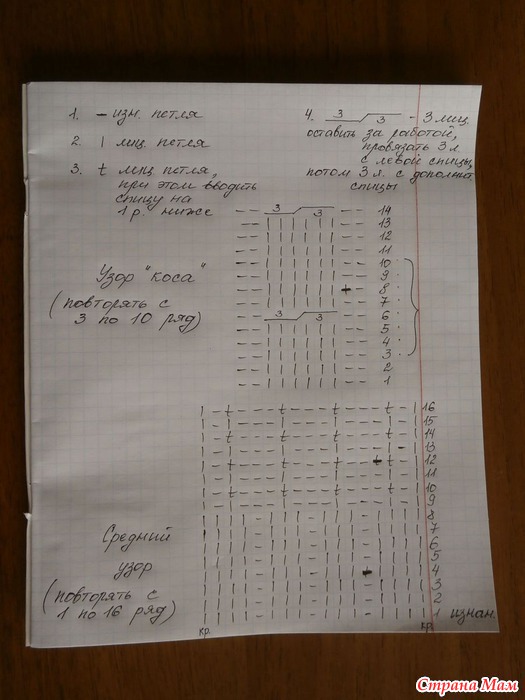 1. — изн. петля
2. | лиц. петля
3. t лиц петля,
при этом вводить
спицу на
1 р. ниже
4. 3 3 - 3 лиц.
оставить за работой,
провязать 3 л
с левой спицы,
потом 3 л. с дополнит
спицы
Узор "коса"
(повторять с
3 по 10 ряд)
3 3 14
13
12
11
10
9
8
7
3 3 6
5
4
3
2
1
Средний
узор
(повторять с
1 по 16 ряд)
16
15
14
13
12
11
10
9
8
7
6
5
4
3
2
1 изнан.
кр. кр.
Страна Мам